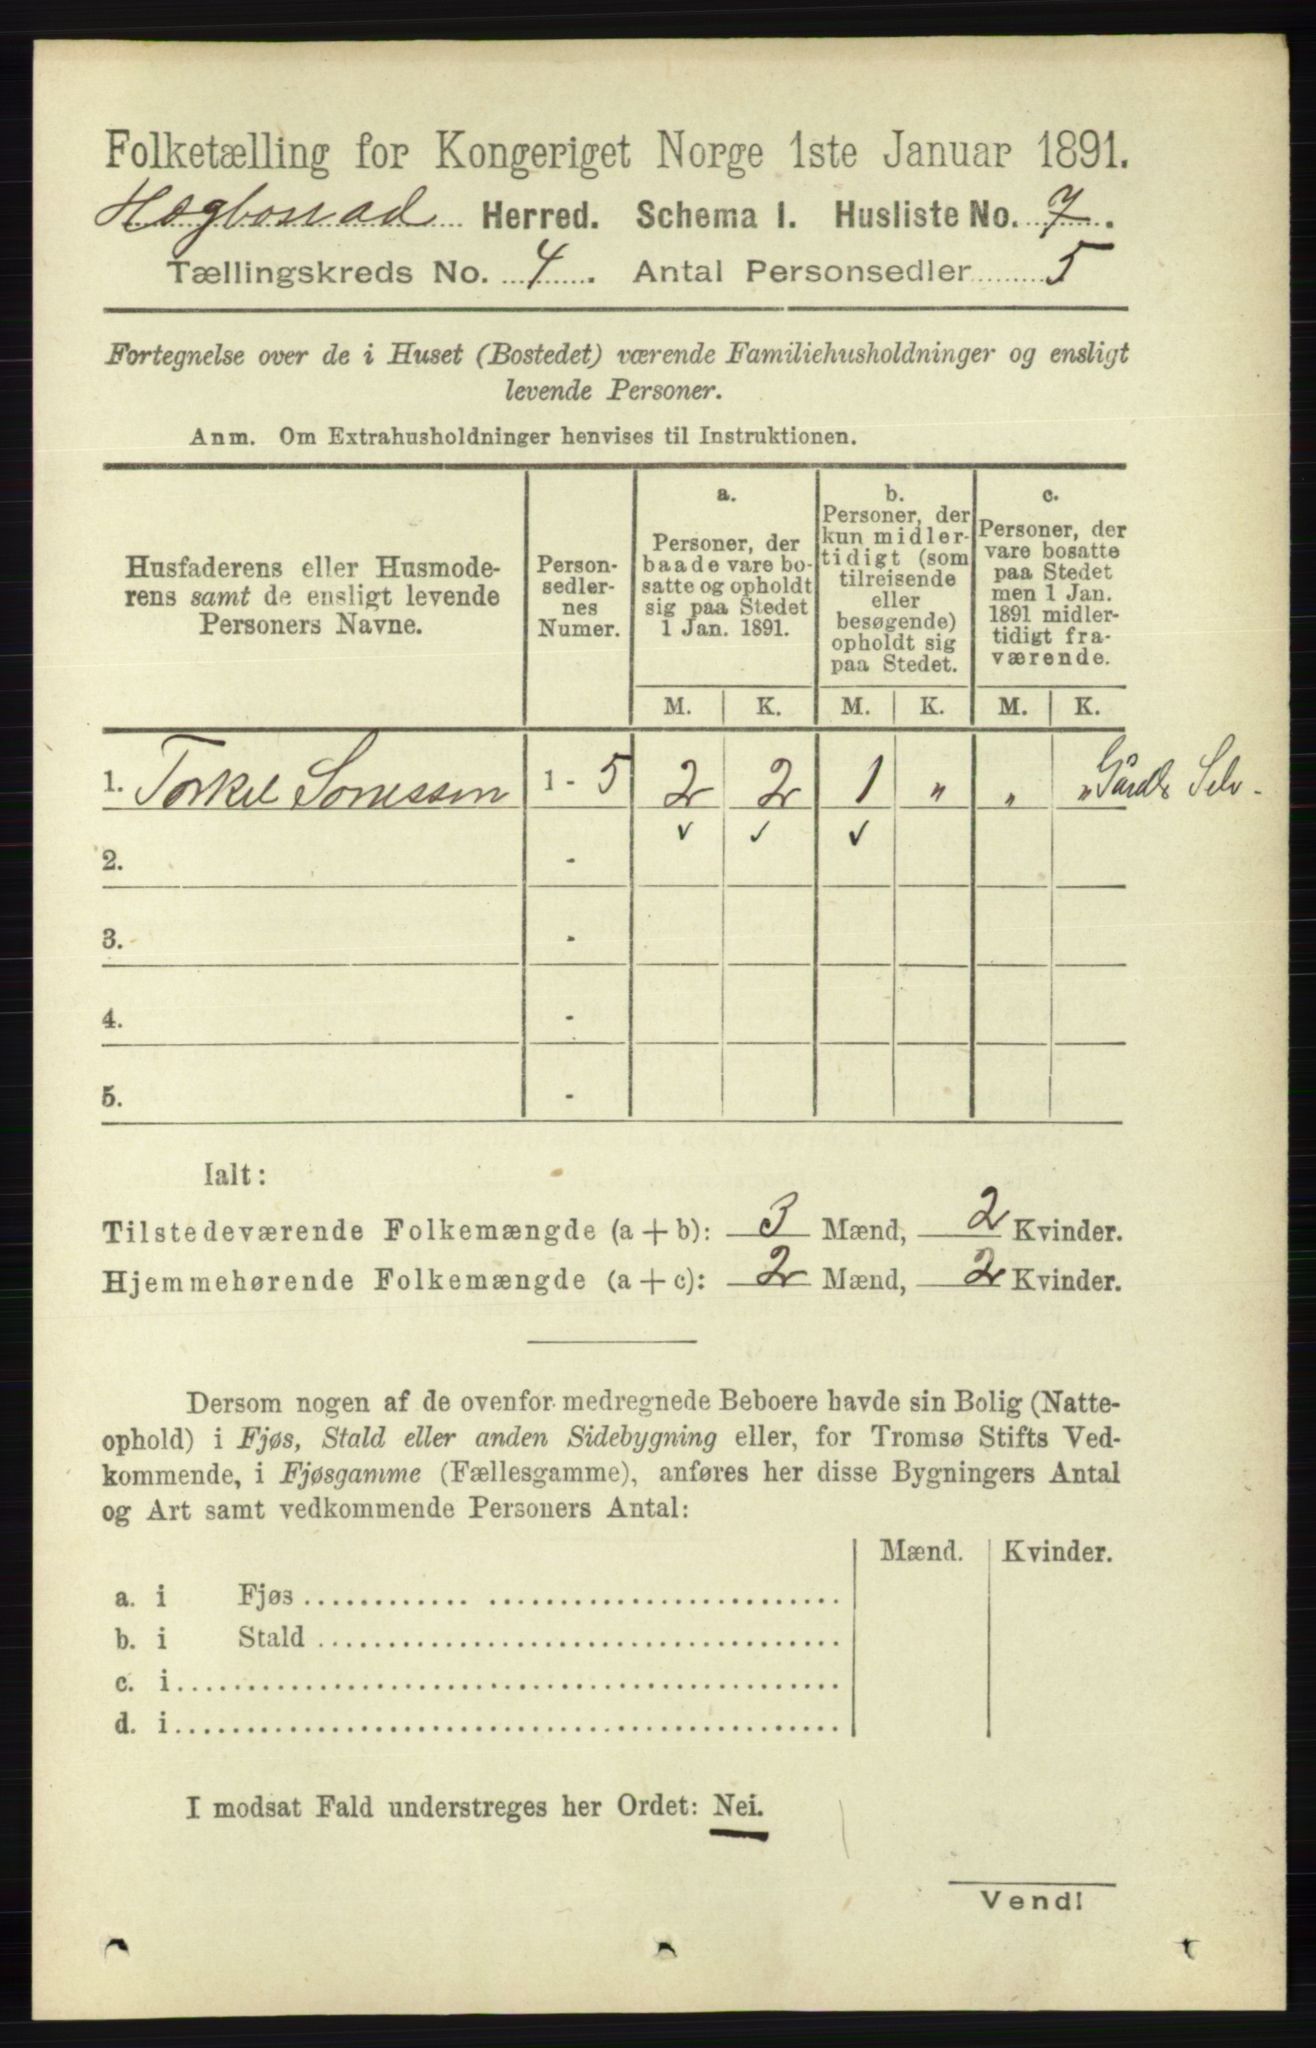 Folketælling for Kongeriget Norge 1ste Januar 1891.
Hægbostad Herred. Schema I. Husliste No. 7.
Tællingskreds No. 4. Antal Personsedler 5
Fortegnelse over de i Huset (Bostedet) værende Familiehusholdninger og ensligt
levende Personer.
Anm. Om Extrahusholdninger henvises til Instruktionen.
Husfaderens eller Husmode-
rens samt de ensligt levende
Personers Navne.
Person-
sedler-
nes
Numer.
a.
Personer, der
baade vare bo-
satte og opholdt
sig paa Stedet
1 Jan. 1891.
b.
Personer, der
kun midler-
tidigt (som
tilreisende
eller
besøgende)
opholdt sig
paa Stedet.
c.
Personer, der
vare bosatte
paa Stedet
men 1 Jan.
1891 midler-
tidigt fra-
værende.
M. K. M. K. M. K.
1. Torkel 1 - 5 2 2 1 " " " Selv.
✓ ✓ ✓
2. -
3. -
4. -
5. -
Ialt:
Tilstedeværende Folkemængde (a + b): 3 Mænd, 2 Kvinder.
Hjemmehørende Folkemængde (a + c): 2 Mænd, 2 Kvinder.
Dersom nogen af de ovenfor medregnede Beboere havde sin Bolig (Natte-
ophold) i Fjøs, Stald eller anden Sidebygning eller, for Tromsø Stifts Ved-
kommende, i Fjøsgamme (Fællesgamme), anføres her disse Bygningers Antal
og Art samt vedkommende Personers Antal:
Mænd. Kvinder.
a. i Fjøs
b. i Stald
c. i
d. i
I modsat Fald understreges her Ordet: Nei.
Vend!